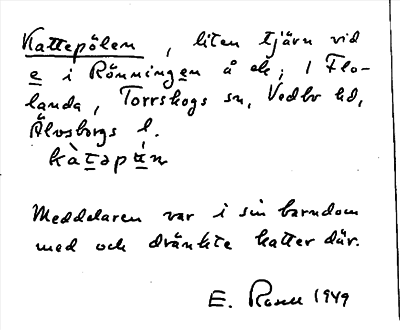 Kattepölen, liten tjärn vid
e i Rönningen å ek; i Flo-
landa, Torrskogs sn, Vedbo hd,
Älvsborgs l.
Meddelaren var i sin barndom
med och dränkte katter där.
E. 1949